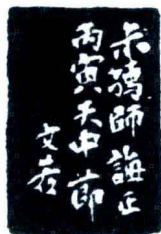 師誨正
丙寅天中節
文若